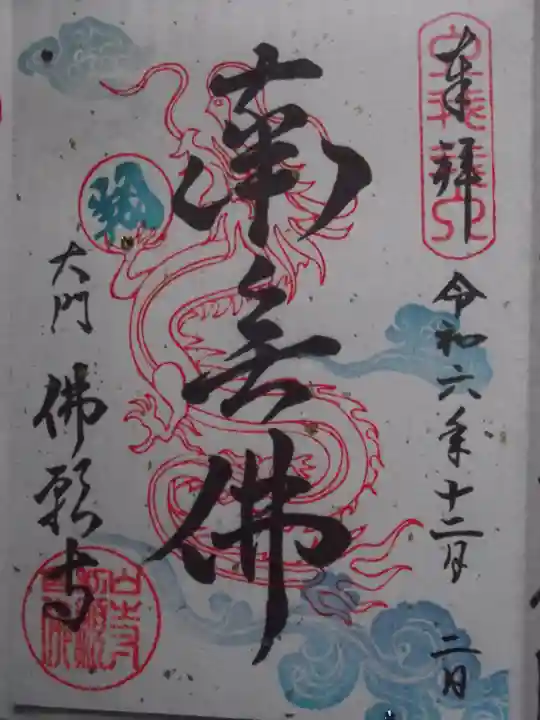 奉拝
令和六年十二月二日
南無佛
大門 佛願寺